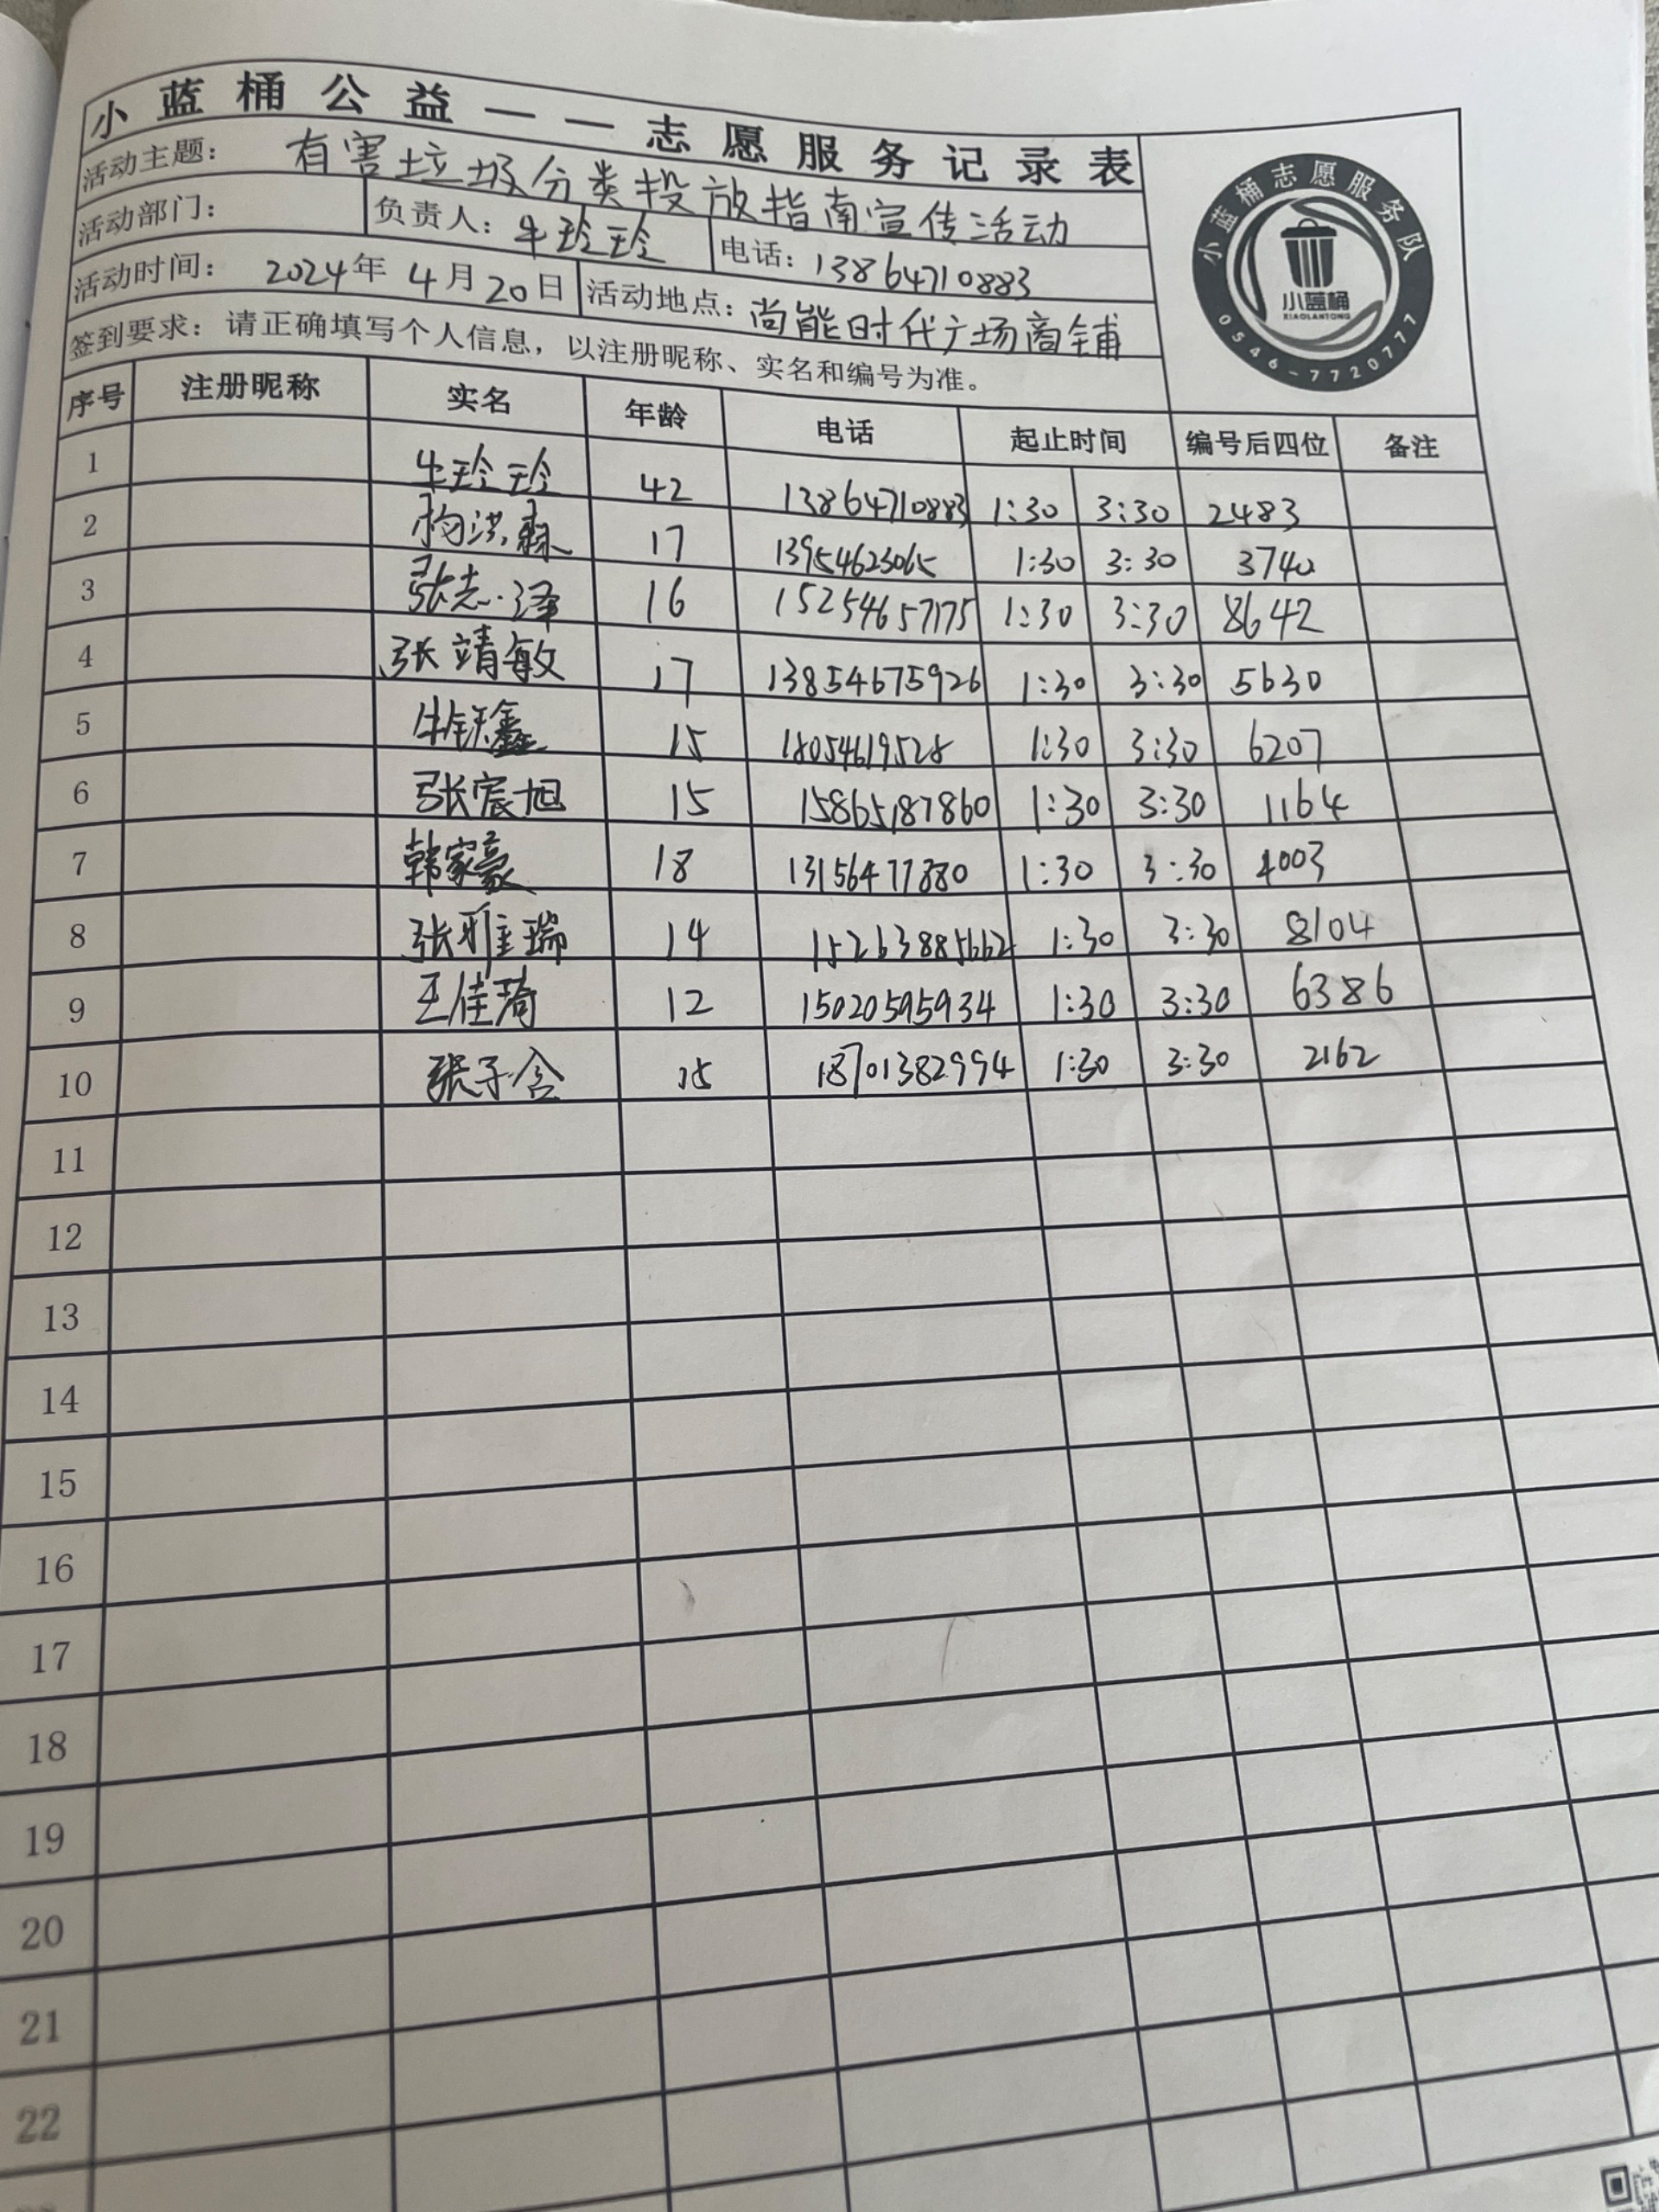 小蓝桶公益——志愿服务记录表
活动主题： 有害垃圾分类投放指南宣传活动
活动部门： 负责人：牛玲玲 电话：13864710883
活动时间： 2024年 4月20日 活动地点：尚能时代广场商铺
签到要求：请正确填写个人信息，以注册昵称、实名和编号为准。
小蓝桶志愿服务队
小蓝桶
XIAOLANTONG
0546-7720777
序号 注册昵称 实名 年龄 电话 起止时间 编号后四位 备注
1 牛玲玲 42 13864710883 1:30 3:30 2483
2 洪森 17 13954623065 1:30 3:30 3740
3 张志泽 16 15254657175 1:30 3:30 8642
4 张靖敏 17 13854675926 1:30 3:30 5630
5 牛钰鑫 15 18054619528 1:30 3:30 6207
6 张宸旭 15 15865187860 1:30 3:30 1164
7 韩家豪 18 13156477880 1:30 3:30 4003
8 张雅瑞 14 15263885662 1:30 3:30 8104
9 王佳琦 12 15020595934 1:30 3:30 6386
10 张子含 15 18701382994 1:30 3:30 2162
11
12
13
14
15
16
17
18
19
20
21
22